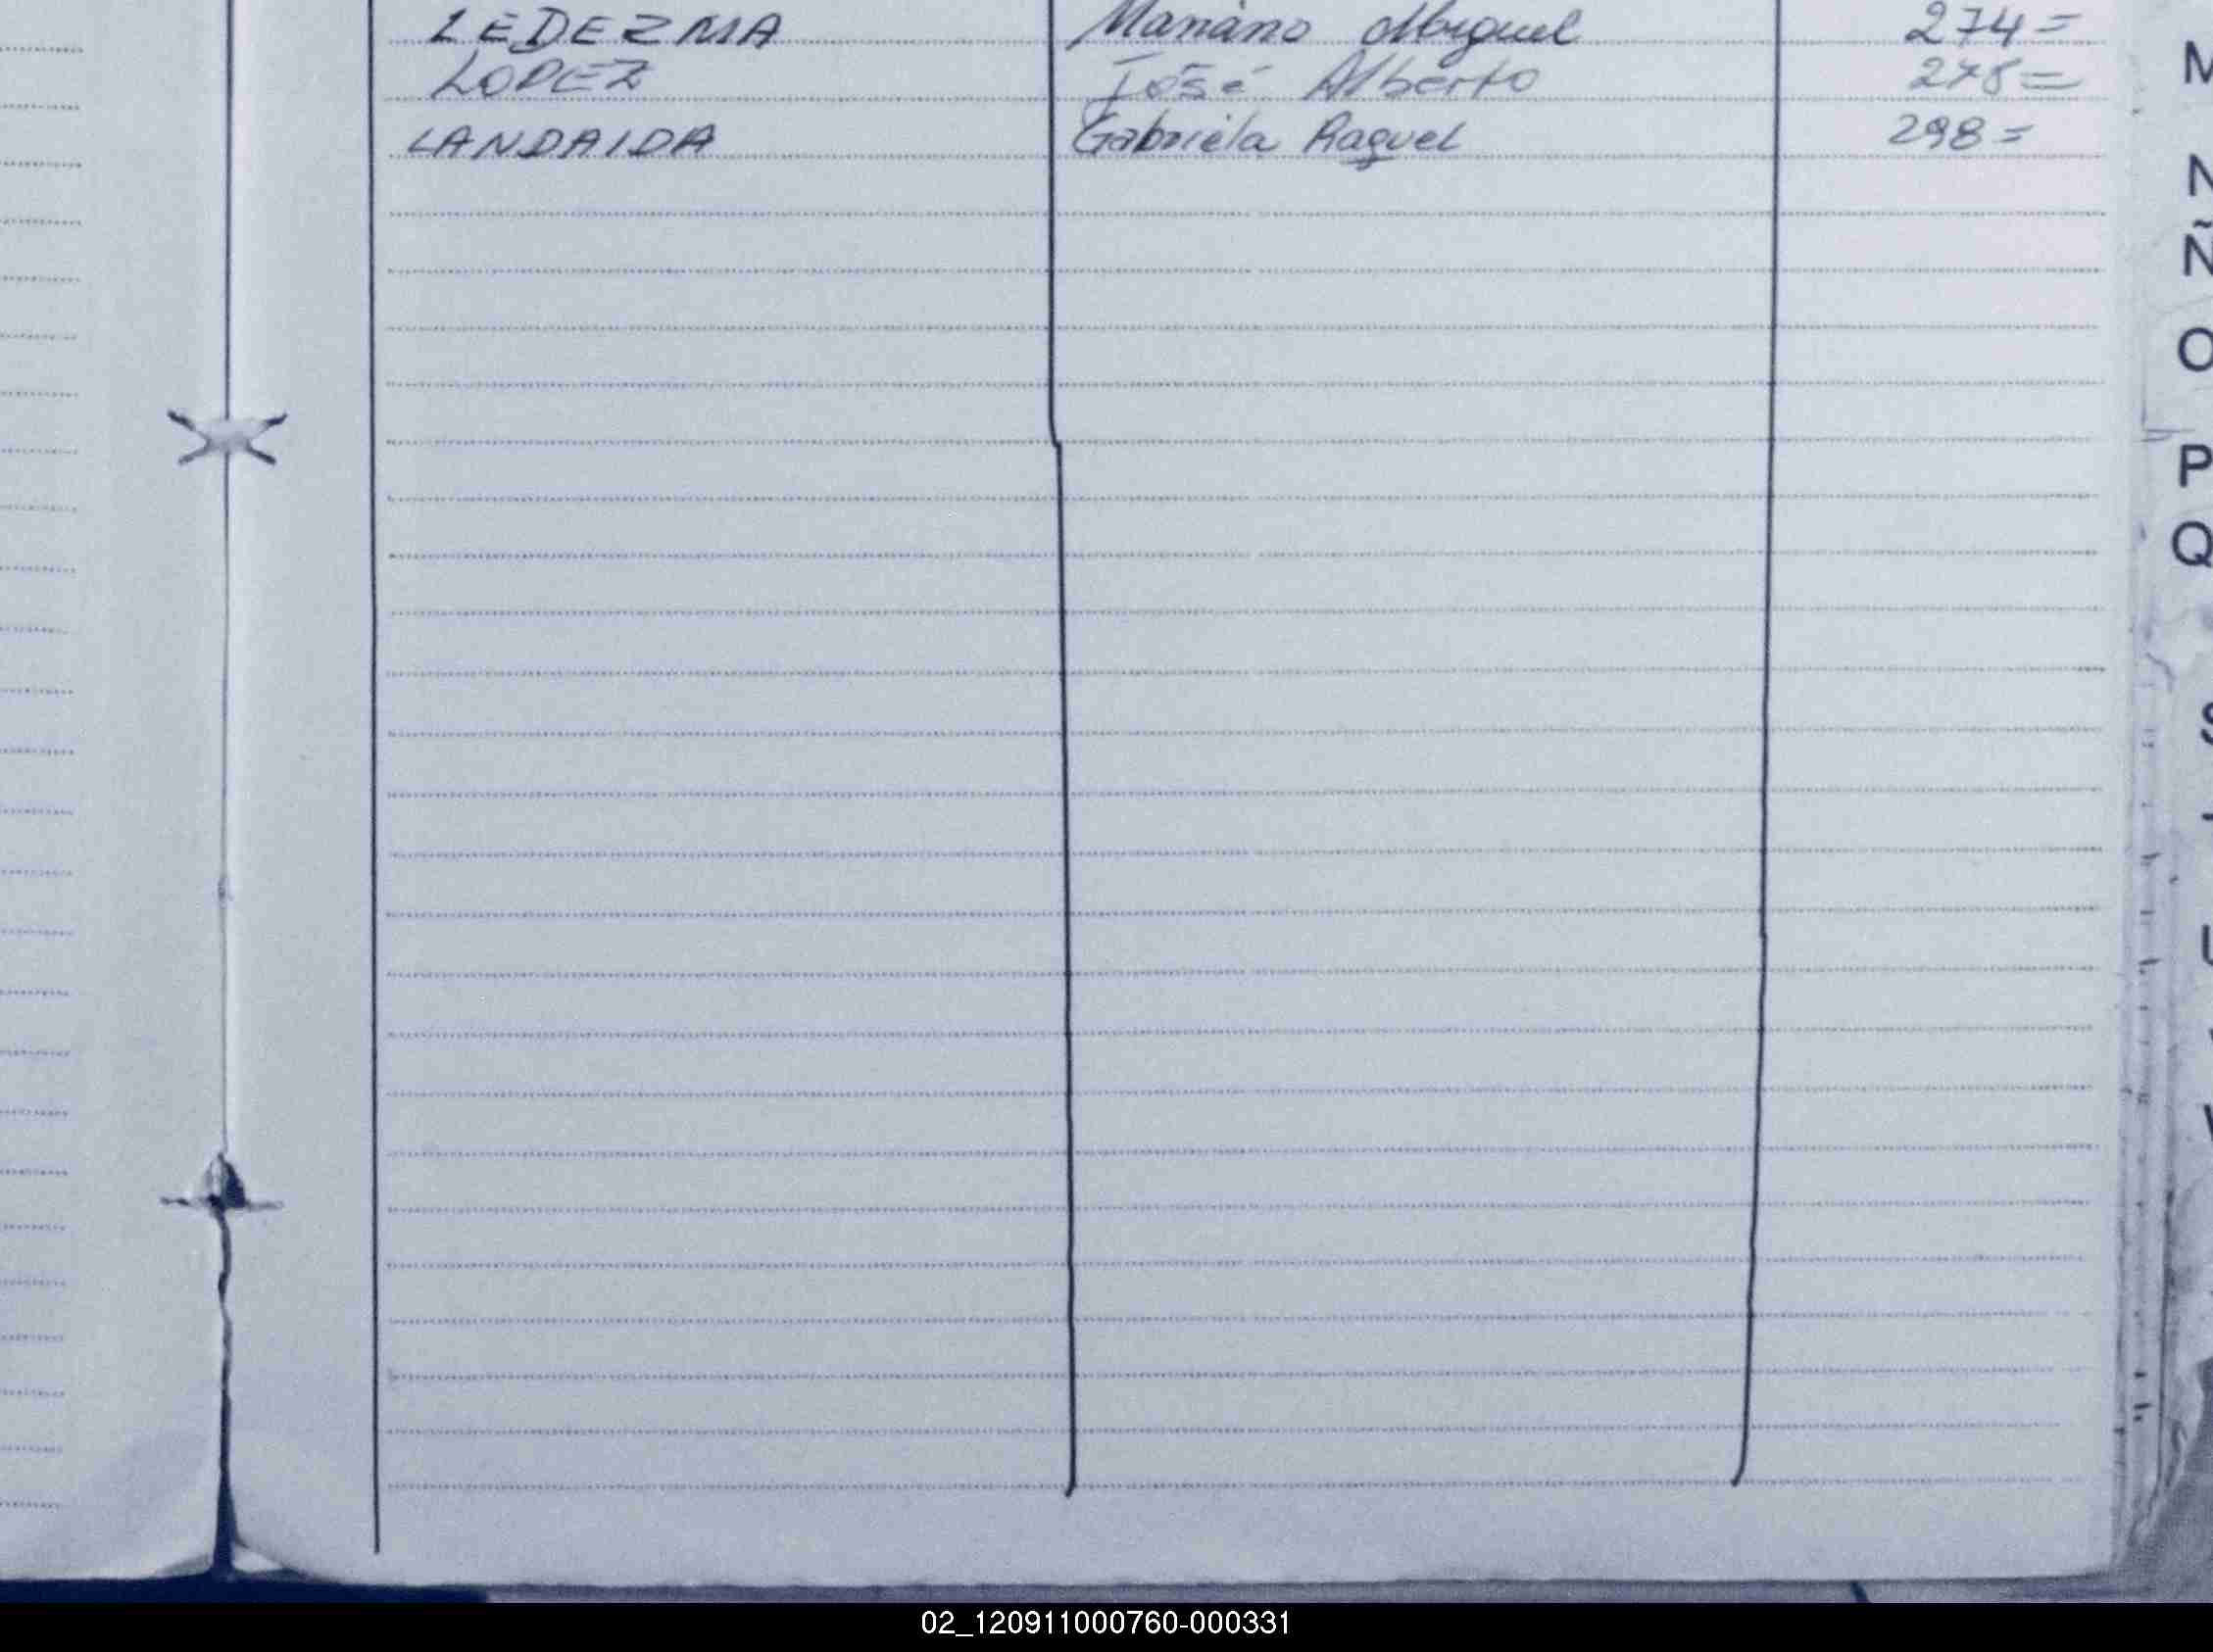 LEDEZMA Mariano Miguel 274=
LOPEZ José Alberto 278=
LANDAIDA Gabriela Raquel 298=
M
N
Ñ
O
P
Q
S
T
U
V
02_120911000760-000331